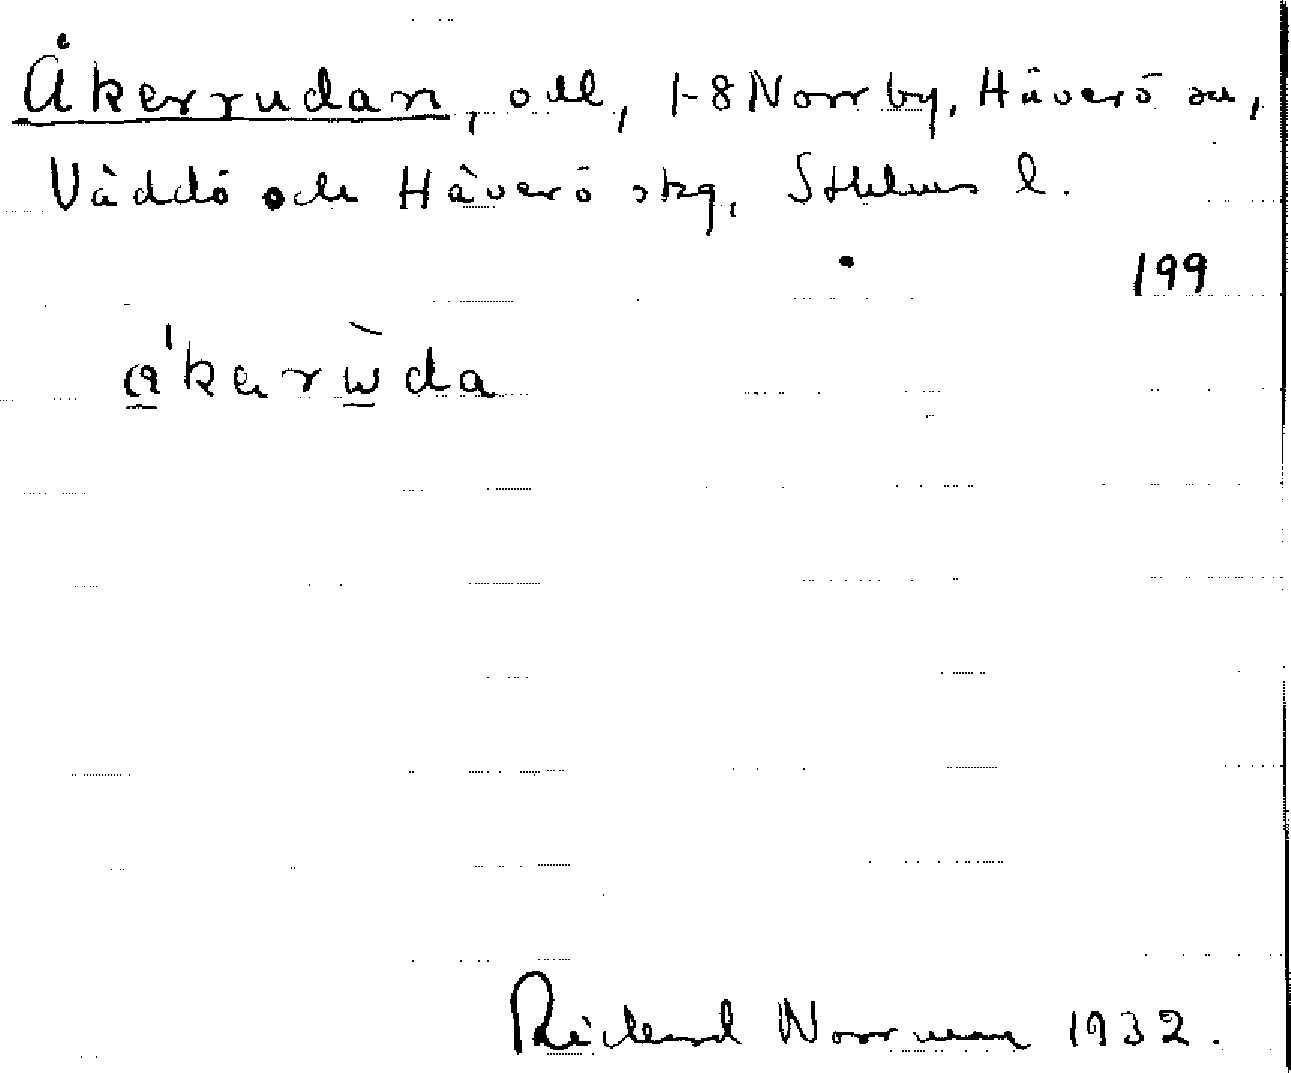 Åkerrudan, odl, 1-8 Norrby, Häverö sn,
Väddö och Häverö skg, Sthlms l.
199
a'kerùda
Rickard Norrman 1932.